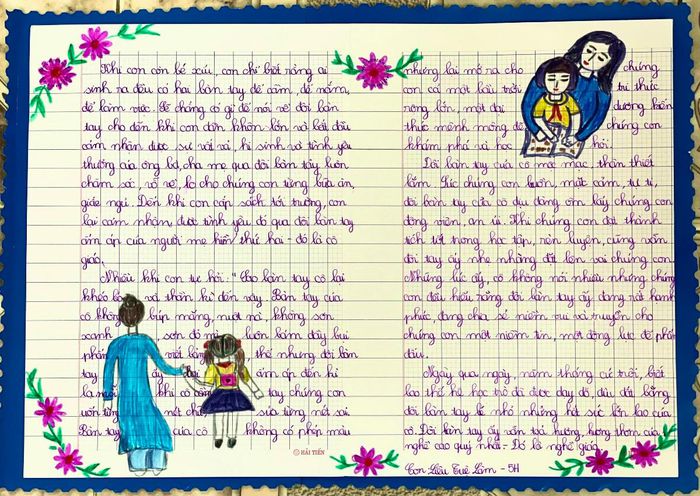 Khi con còn bé xíu, con chỉ biết rằng ai
sinh ra đều có hai bàn tay để cầm, để nắm,
để làm việc. Sẽ chẳng có gì để nói về đôi bàn
tay cho đến khi con dần khôn lớn và bắt đầu
cảm nhận được sự vất vả, hi sinh và tình yêu
thương của ông bà, cha mẹ qua đôi bàn tay luôn
chăm sóc, vỗ về, lo cho chúng con từng bữa ăn,
giấc ngủ. Đến khi con cắp sách tới trường, con
lại cảm nhận được tình yêu đó qua đôi bàn tay
ấm áp của người mẹ hiền thứ hai - đó là cô
giáo.
Nhiều khi con tự hỏi: "Sao bàn tay cô lại
khéo léo và thần kì đến vậy. Bàn tay của
cô không búp măng, nuột nà, không sơn
xanh sơn đỏ mà luôn lấm đầy bụi
phấn viết bảng thế nhưng đôi bàn
tay ấy lại ấm áp đến kì
lạ khi cô cầm tay chúng con
uốn từng nét chữ sửa từng nét sai.
Bàn tay của cô không có phép màu
nhưng lại mở ra cho chúng
con cả một bầu trời tri thức
rộng lớn, một đại dương kiến
thức mênh mông để chúng con
khám phá và học hỏi.
Đôi bàn tay của cô mộc mạc, thân thiết
lắm. Lúc chúng con buồn, mặt cảm, tự ti,
đôi bàn tay của cô dịu dàng ôm lấy chúng con
động viên, an ủi. Khi chúng con đạt thành
tích tốt trong học tập, rèn luyện, cũng vẫn
đôi tay ấy nhẹ nhàng đặt lên vai chúng con.
Những lúc ấy, cô không nói nhiều nhưng chúng
con đều hiểu rằng đôi bàn tay ấy đang rất hạnh
phúc, đang chia sẻ niềm vui và truyền cho
chúng con một niềm tin, một động lực để phấn
đấu.
Ngày qua ngày, năm tháng cứ trôi, biết
bao thế hệ học trò đã được dạy dỗ, dìu dắt bằng
đôi bàn tay bé nhỏ nhưng hết sức lớn lao của
cô. Đôi bàn tay ấy vẫn toả hương, hương thơm của
nghề cao quý nhất - Đó là nghề giáo.
Con Liêu Tuệ Lâm - 5H
© HẢI TIẾN